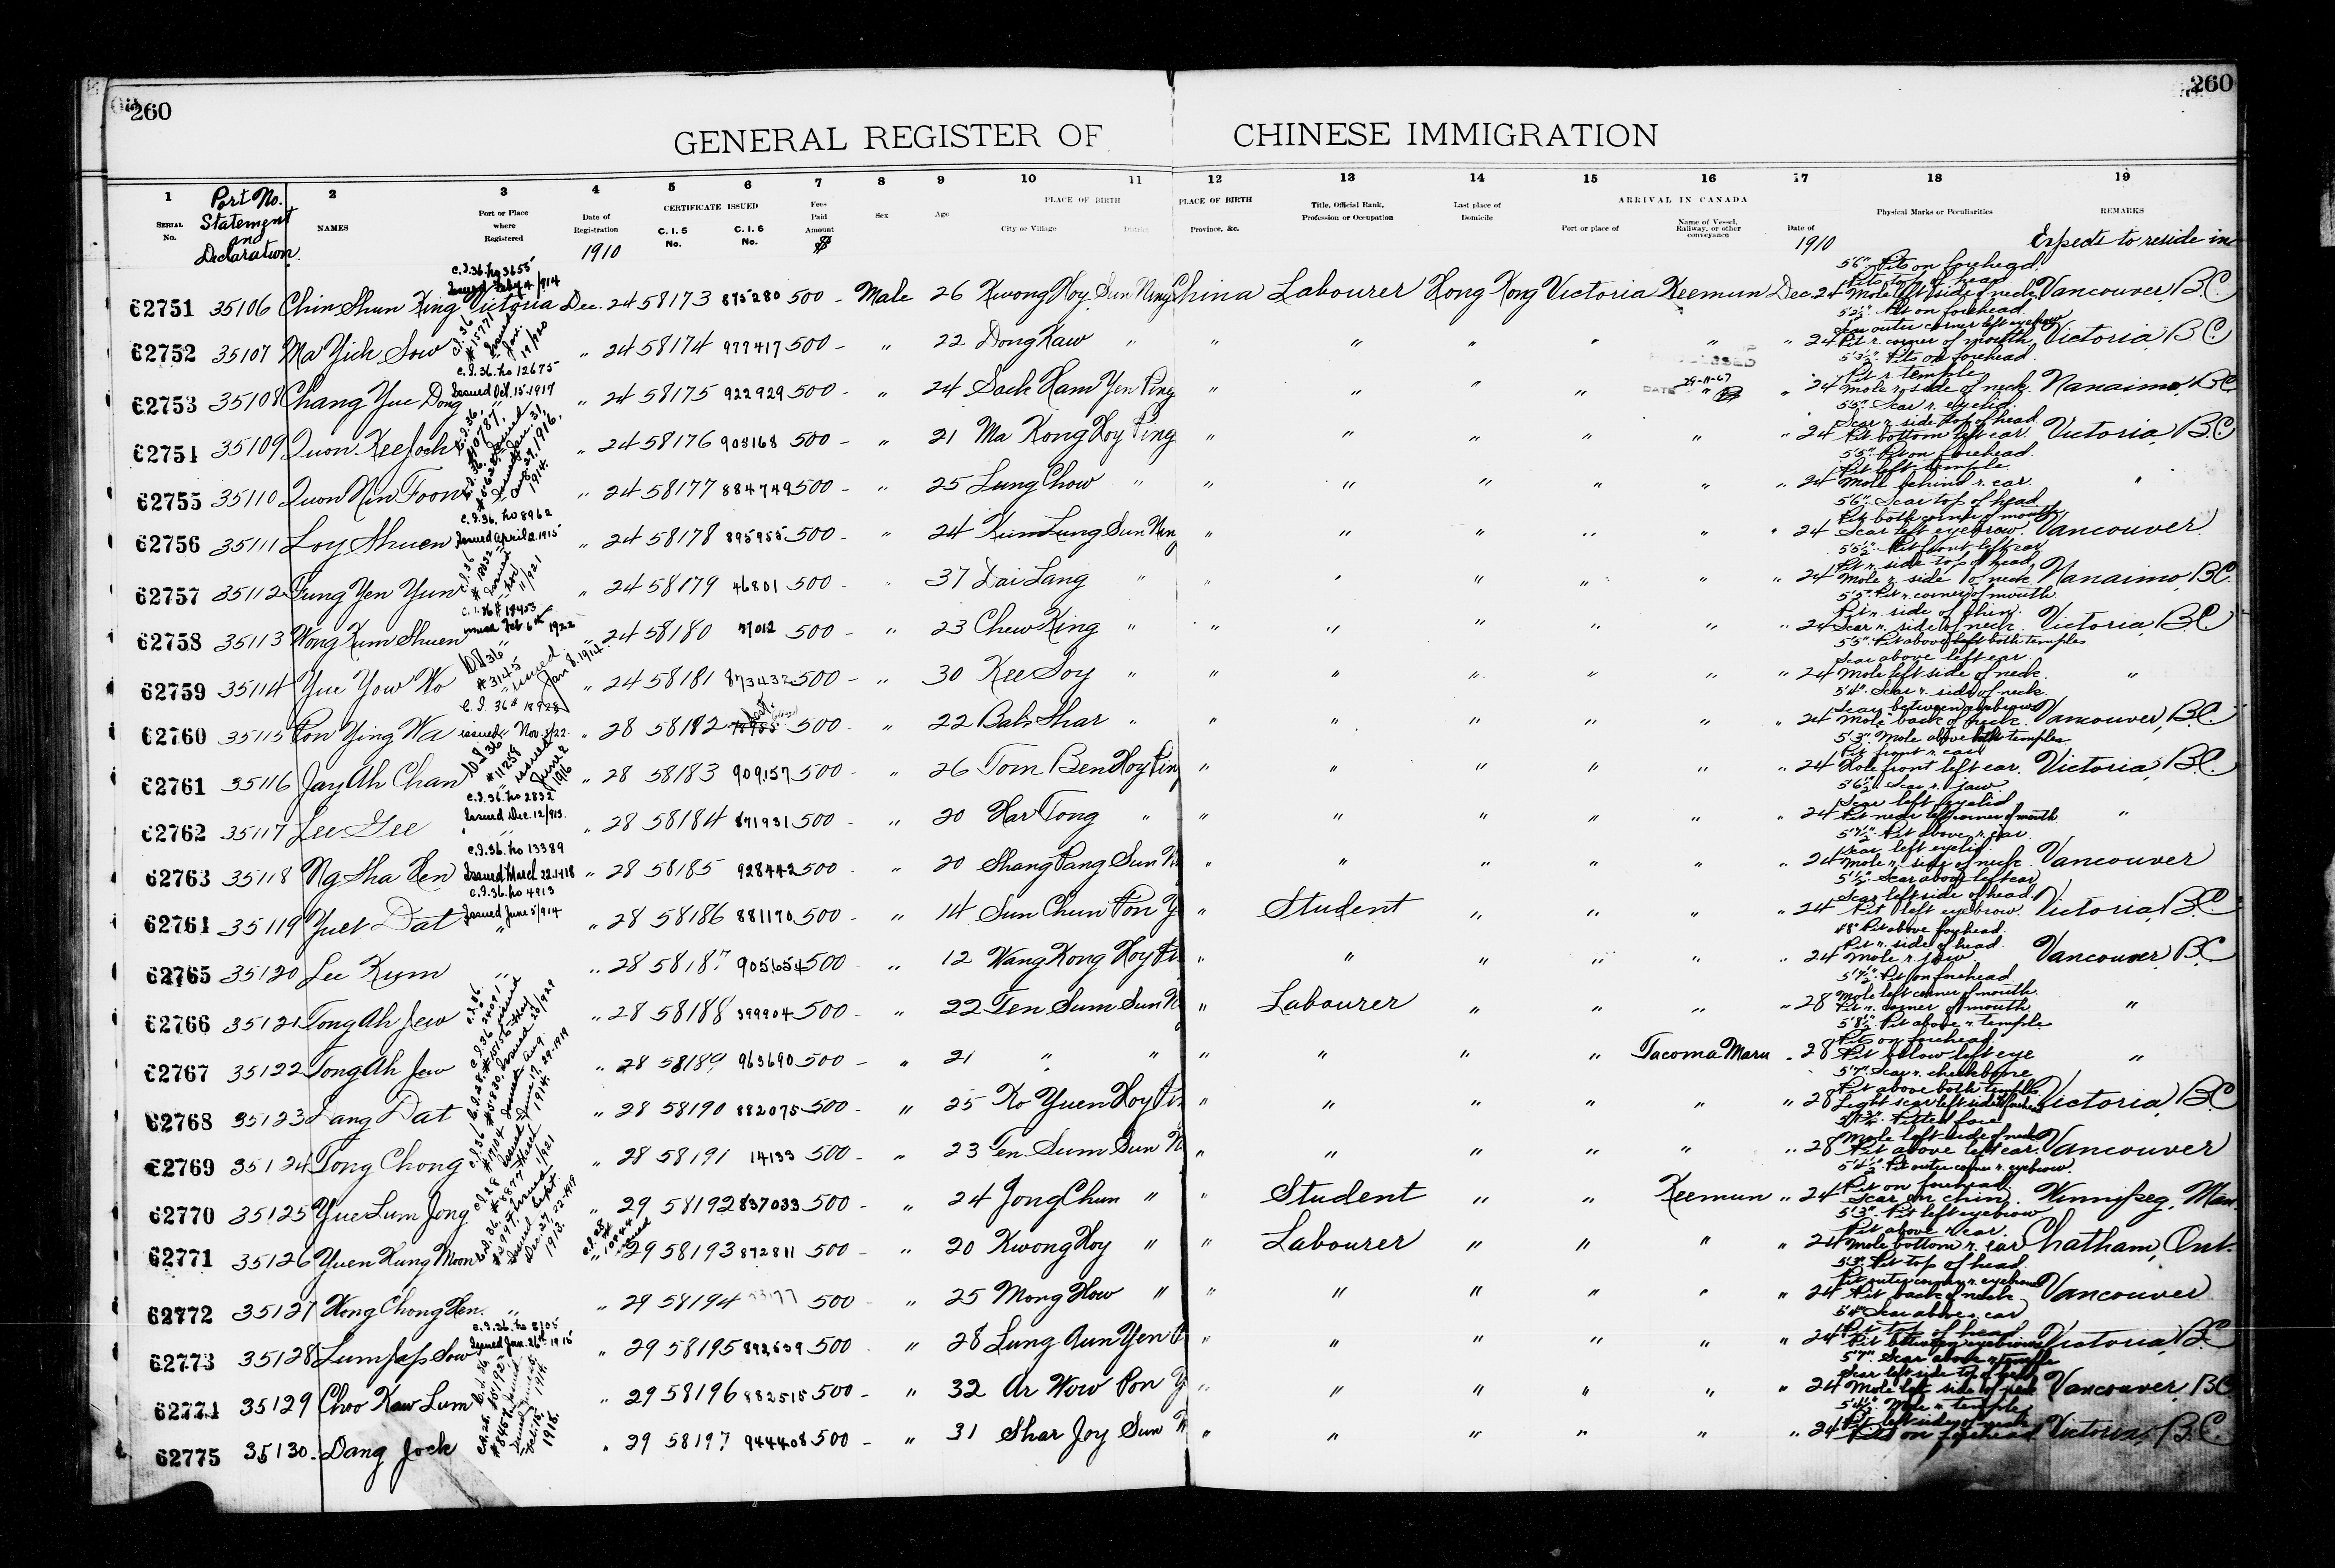 260
260
GENERAL REGISTER OF CHINESE IMMIGRATION
1 Port No. 2 3 4 5 6 7 8 9 10 11 12 13 14 15 16 17 18 19
SERIAL No. Statement and Declaration NAMES Port or Place where Registered Date of Registration CERTIFICATE ISSUED C. I. 5 No. C. I. 6 No. Fees Paid Amount $ Sex Age PLACE OF BIRTH City or Village District PLACE OF BIRTH Province, &c. Title, Official Rank, Profession or Occupation Last place of Domicile ARRIVAL IN CANADA Port or place of Name of Vessel, Railway, or other conveyance Date of Physical Marks or Peculiarities REMARKS
1910 1910 Expects to reside in
C.I.36. No 3655
Issued Feby 4/914
62751 35106 Chin Shun King Victoria Dec. 24 58173 875280 500 - Male 26 Kwong Hoy Sun Ning China Labourer Hong Kong Victoria Keemun Dec. 24 5'6" Pits on forehead. Mole left side of neck. Vancouver, B.C.
62752 35107 Ma Yick Sow " 24 58174 977417 500 - " 22 Dong Kaw " " " " " " " 24 Pit on forehead. Scar outer corner left eyebrow Pit r. corner of mouth Victoria, B.C.
C.I.36. No 12675
Issued Oct. 15. 1917
62753 35108 Chang Yue Dong " 24 58175 922929 500 - " 24 Sack Ham Yen Ping " " " " " " 24 5'3½" Pits on forehead. Pit r. temple Mole r. side of neck. Nanaimo, B.C.
DATE 29-11-67
62754 35109 Quon Kee Jock " 24 58176 903168 500 - " 21 Ma Kong Hoy Ping " " " " " " 24 5'5" Scar r. eyelid. Scar r. side top of head Pit bottom left ear. Victoria, B.C.
62755 35110 Quon Nin Foon " 24 58177 884749 500 - " 25 Lung Chow " " " " " " " 24 5'5" Pit on forehead. Pit left temple. Mole behind r. ear. "
C.I.36. No 8962
Issued April 2. 1915
62756 35111 Loy Shuen " 24 58178 895955 500 - " 24 Kum Lung Sun Ning " " " " " " 24 5'6" Scar top of head Pit both corners of mouth Scar left eyebrow. Vancouver
62757 35112 Fung Yen Yun " 24 58179 46801 500 - " 37 Dai Lang " " " " " " " 24 5'5½" Pit front left ear Pit r. side top of head Mole r. side of neck. Nanaimo, B.C.
C.I.36 # 19453
Issued Feb 6th 1922
62758 35113 Wong Kum Shuen " 24 58180 37012 500 - " 23 Chew King " " " " " " " 24 5'5" Pit r. corner of mouth. Pit r. side of chin. Scar r. side of neck. Victoria, B.C.
62759 35114 Yue Yow Wo " 24 58181 873432 500 - " 30 Kee Soy " " " " " " " 24 Scar above left ear Mole left side of neck. "
62760 35115 Pon Ying Wa " 28 58182 500 - " 22 Bah Shar " " " " " " " 24 5'4" Scar r. side of neck. Scar between eyebrows Mole back of neck. Vancouver, B.C.
62761 35116 Jay Ah Chan " 28 58183 909157 500 - " 26 Tom Ben Hoy Pin " " " " " " 24 5'3" Mole above both temples Pit front r. ear Hole front left ear. Victoria, B.C.
C.I.36. No 2832
Issued Dec. 12/913.
62762 35117 Lee Gee " 28 58184 871931 500 - " 20 Har Tong " " " " " " " 24 5'6½" Scar r. jaw. Scar left eyelid Pit near left corner of mouth "
C.I.36. No 13389
Issued March 22. 1918
62763 35118 Ng Sha Hen " 28 58185 928442 500 " 20 Shang Pang Sun N " " " " " " 24 5'7½" Pit above r. ear. Scar left eyelid. Mole r. side of neck. Vancouver
C.I.36. No 4913
Issued June 5/914
62764 35119 Yuet Dat " 28 58186 881170 500 - " 14 Sun Chun Pon Y " Student " " " " 24 Scar above left ear Scar left side of head. Pit left eyebrow. Victoria, B.C.
62765 35120 Lee Kum " 28 58187 905654 500 - " 12 Wang Kong Hoy Pi " " " " " " 24 4'8" Pit above forehead. Pit r. side of head. Mole r. jaw. Vancouver, B.C.
62766 35121 Tong Ah Jew " 28 58188 399904 500 - " 22 Ten Sum Sun N " Labourer " " " " 28 5'7½" Pit on forehead Mole left corner of mouth. Pit r. corner of mouth. "
62767 35122 Tong Ah Jew " 28 58189 963690 500 - " 21 " " " " " " Tacoma Maru " 28 5'8½" Pit above r. temple Pits on forehead. Pit below left eye "
62768 35123 Lang Dat " 28 58190 882075 500 - " 25 Ko Yuen Hoy Pin " " " " " " 28 5'7" Scar r. cheekbone Pit above both temples. Light scar left side of forehead Victoria, B.C.
62769 35124 Tong Chong " 28 58191 14133 500 - " 23 Ten Sum Sun N " " " " " " 28 Pitted face Mole left side of neck Pit above left ear. Vancouver
62770 35125 Yue Lum Jong " 29 58192 837033 500 - " 24 Jong Chun " " Student " " Keemun " 24 5'4½" Pit outer corner r. eyebrow. Pit on forehead. Scar on chin. Winnipeg, Man.
62771 35126 Yuen Kung Moon " 29 58193 872811 500 - " 20 Kwong Hoy " " Labourer " " " " 24 5'3" Pit left eyebrow Pit above r. ear. Mole bottom r. ear Chatham, Ont.
62772 35127 Wong Chong Hen. " " 29 58194 500 - " 25 Mong How " " " " " " " 24 5'3" Pit top of head. Pit outer corner r. eyebrow Pit back of neck Vancouver
C.I.36. No 8105
Issued Jan. 26th 1915
62773 35128 Lum Jap Sow " 29 58195 892639 500 " 28 Lung Aun Yen P " " " " " " 24 5'4" Scar above r. ear Pit top of head Pit between eyebrows Victoria, B.C.
62774 35129 Choo Kaw Lum " 29 58196 882515 500 - " 32 Ar Wow Pon Y " " " " " " 24 5'7" Scar above r. temple Scar left side top of head Mole left side of neck Vancouver, B.C.
62775 35130 Dang Jock " 29 58197 944408 500 - " 31 Shar Joy Sun N " " " " " " 24 5'4½" Mole r. temple Pit left side of neck Pits on forehead Victoria, B.C.